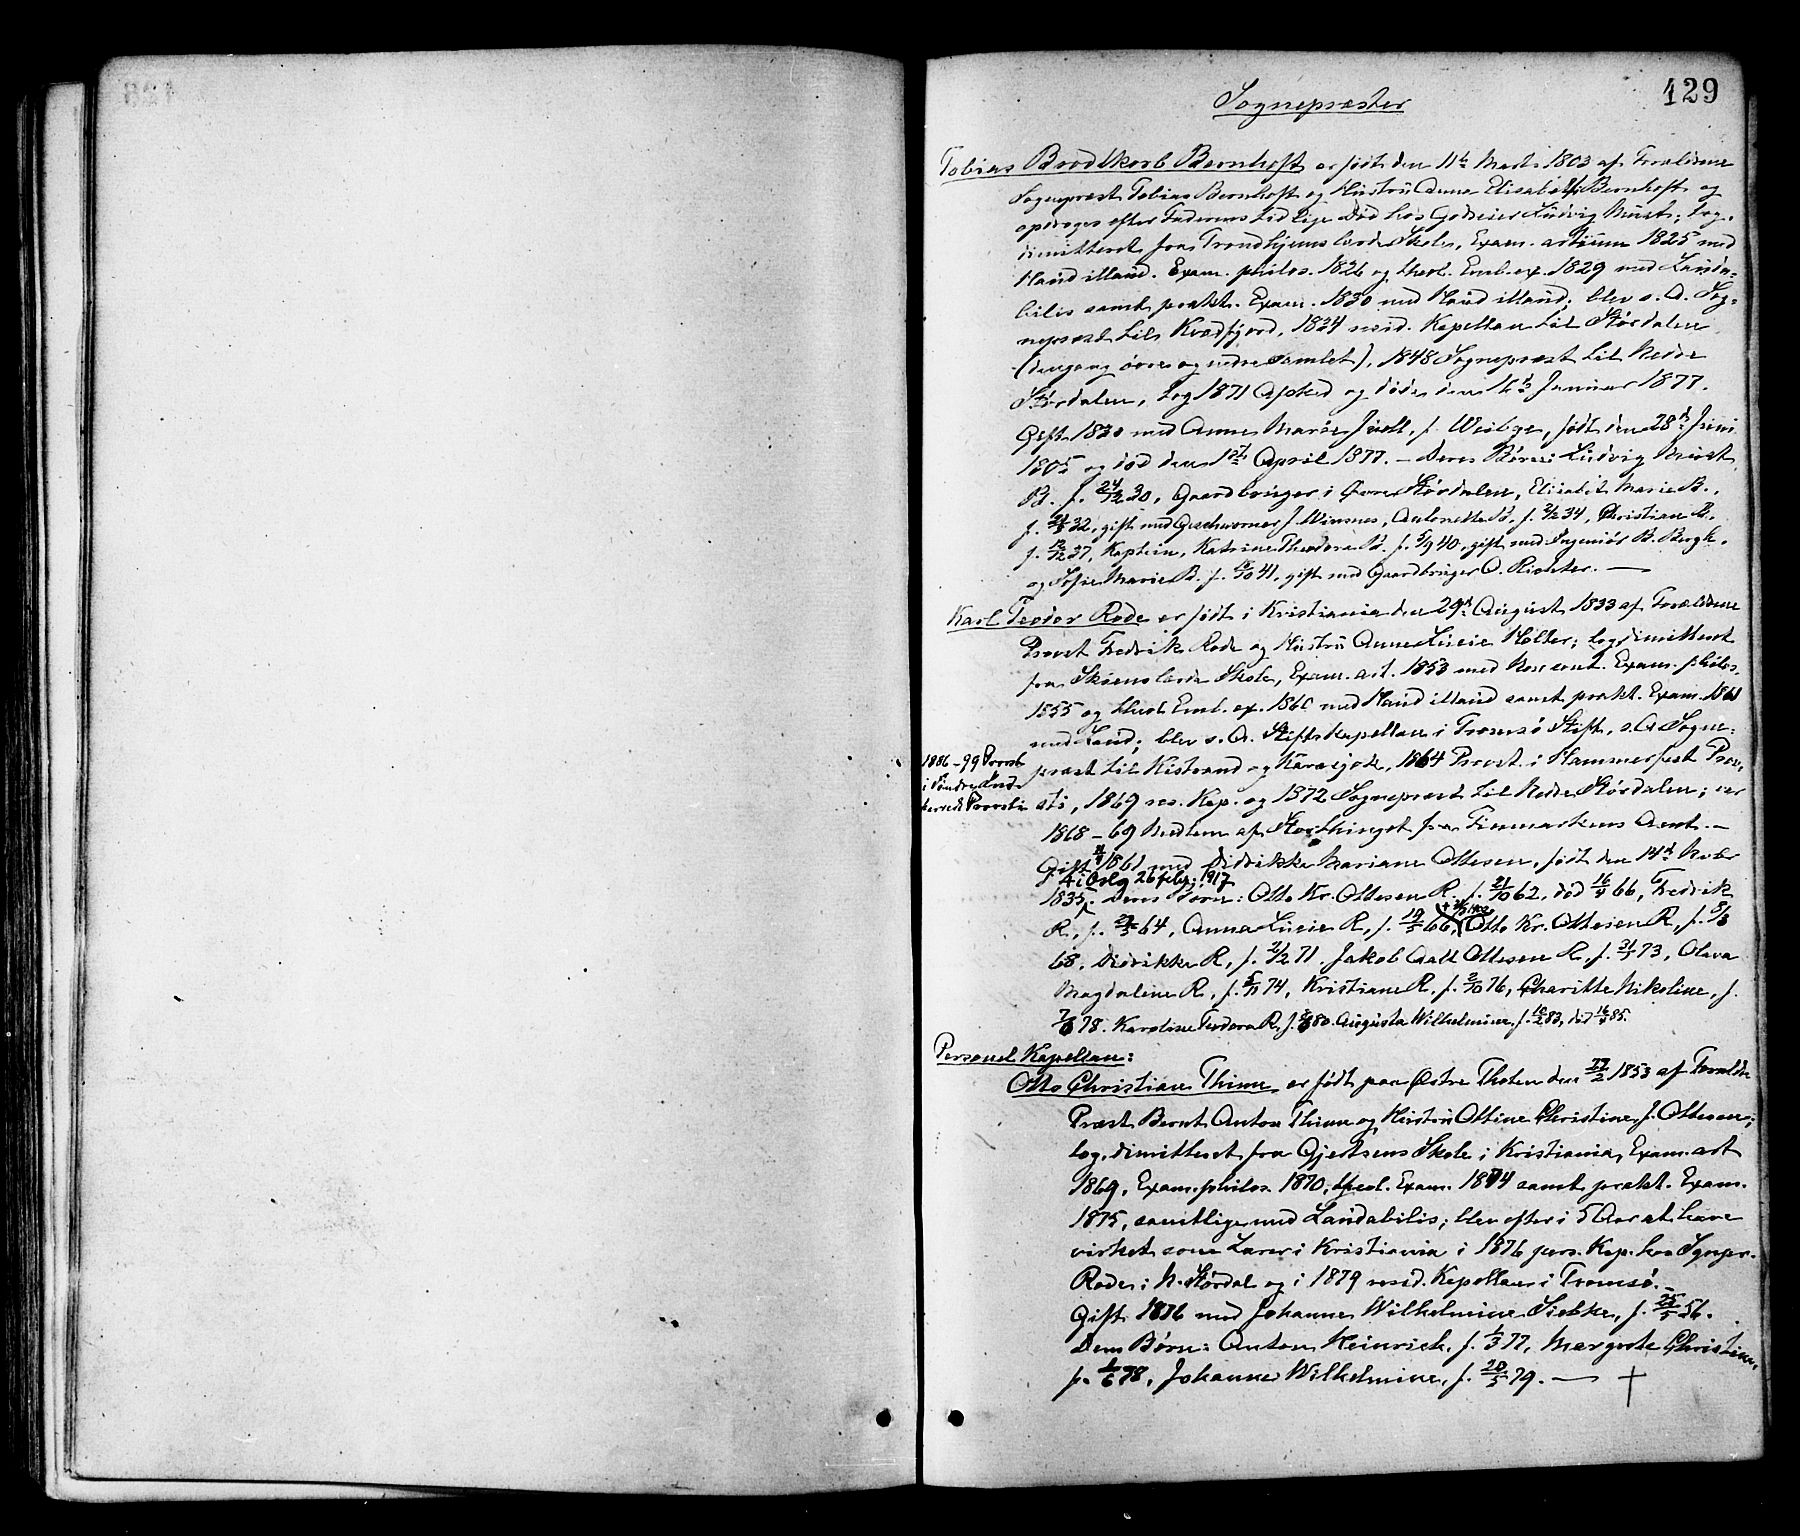 129
Sognepræster
Tobias Brodtkorb Bernhoft er født den 11te Marts 1803 af Forældrene
Sognepræst Tobias Bernhoft og Hustru Anna Elisabeth Bernhoft og
opdroges efter Faderens tidlige Død hos Godseier Ludvig Must; bog.
dimitteret fra Trondhjems lærde Skole, Exam. artium 1825 med
Haud illaud. Exam. philos. 1826 og theol. Emb. ex. 1829 med Lauda=
bilis samt prakt. Exam. 1830 med Haud illaud; blev s. A. Sog=
nepræst til Kvædfjord, 1834 resid. Kapellan til Størdalen
(dengang øvre og nedre samlet), 1848 Sognepræst til Nedre
Størdalen, tog 1871 Afsked og døde den Januar 1877.
Gift 1830 med Anne Marie Juell, f. Weibye, født den 28de Juni
1805 og død den April 1877. – Deres Børn: Ludvig Must
B. f. 24/12 30, Gaardbruger i Øvre Størdalen, Elisabet Marie B.,
f. 32, gift med Geschworner J. Winsnes, Antonette B. f. 2/2 34, Christian B.,
f. 12/12 37, Kaptein, Katrine Theodora B. f. 5/9 40, gift med Ingeniør B. Bergh.
og Sofie Marie B. f. 41, gift med Gaardbruger O. Richter. —
Karl Teodor Rode er født i Kristiania den 29de August 1833 af Forældrene
Provst Fredrik Rode og Hustru Anne Lucie Holter; bog. dimitteret
fra Skiens lærde Skole, Exam. art. 1853 med Non cont. Exam. philos.
1855 og theol. Emb. ex. 1860 med Haud illaud samt prakt. Exam. 1861
med Laud; blev s. A. Stiftskapellan i Tromsø Stift, s. A. Sogne=
præst til Kistrand og Karasjok, 1864 Provst i Hammerfest Prov.
1886–99 Provst
i Søndre Ind-
herreds Provsti
sti, 1869 res. Kap. og 1872 Sognepræst til Nedre Størdalen; var
1868–69 Medlem af Storthinget fra Finmarkens Amt. –
Gift 1861 med Didrikke Mariane Ottesen, født den 14de Novbr
† i Oslo 26 febr. 1917
1835. Deres Børn: Otto Kr. Ottesen R. f. 21/10 62, død 16/4 66, Fredrik
R., f. 64, Anna Lucie R., f. 66, Otto Kr. Ottesen R., f. 8/3
68. Didrikke R., f. 2/2 71. Jakob Aall Ottesen R. f. 73, Olava
Magdalene R., f. 5/11 74, Kristiane R., f. 2/10 76, Charitte Nikoline, f.
7/6 78. Karoline Teodora R. f. 80. Augusta Wilhelmine f. 83, død 85.
Personel Kapellan:
Otto Christian Thime er født paa Østre Thoten den 27/2 1853 af Forældr.
Præst Bernt Anton Thime og Hustru Ottine Christine, f. Ottesen;
bog. dimitteret fra Gjertsens Skole i Kristiania, Exam. art
1869, Exam. philos. 1870, theol. Exam. 1874 samt prakt. Exam.
1875, samtlige med Laudabilis; blev efter i 5 Aar at have
virket som Lærer i Kristiania i 1876 pers. Kap. hos Sognpr.
Rode i N. Størdal og i 1879 resid. Kapellan i Tromsø. –
Gift 1876 med Johanne Wilhelmine Siebke, f. 25/5 56.
Deres Børn: Anton Heinrich, f. 1/3 77, Margrete Christine,
f. 1/6 78, Johanne Wilhelmine, f. 20/5 79. — †